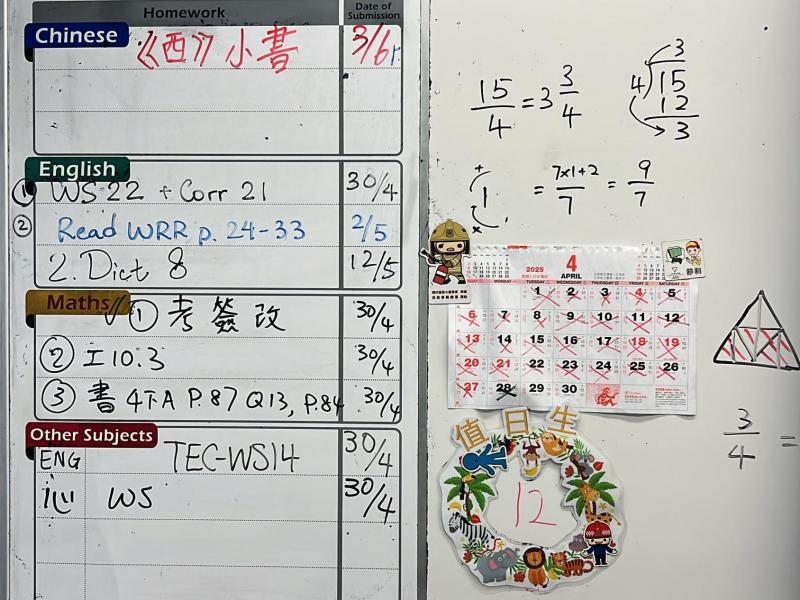 Homework
Date of Submission
Chinese
《西》小書 3/6
English
① WS 22 + Corr 21 30/4
② Read WRR p. 24-33 2/5
2. Dict 8 12/5
Maths
✓ ① 考簽改 30/4
② 工10.3 30/4
③ 書4下A P.87 Q13, P.84 30/4
Other Subjects
ENG TEC-WS14 30/4
心 WS 30/4
15/4 = 3 3/4
3
4 15
12
3
+ 1 x = 7x1+2/7 = 9/7
2025 4 APRIL
MONDAY TUESDAY
1 2 3 4 5
6 7 8 9 10 11 12
13 14 15 16 17 18 19
20 21 22 23 24 25 26
27 28 29 30
節制
值日生
12
3/4 =